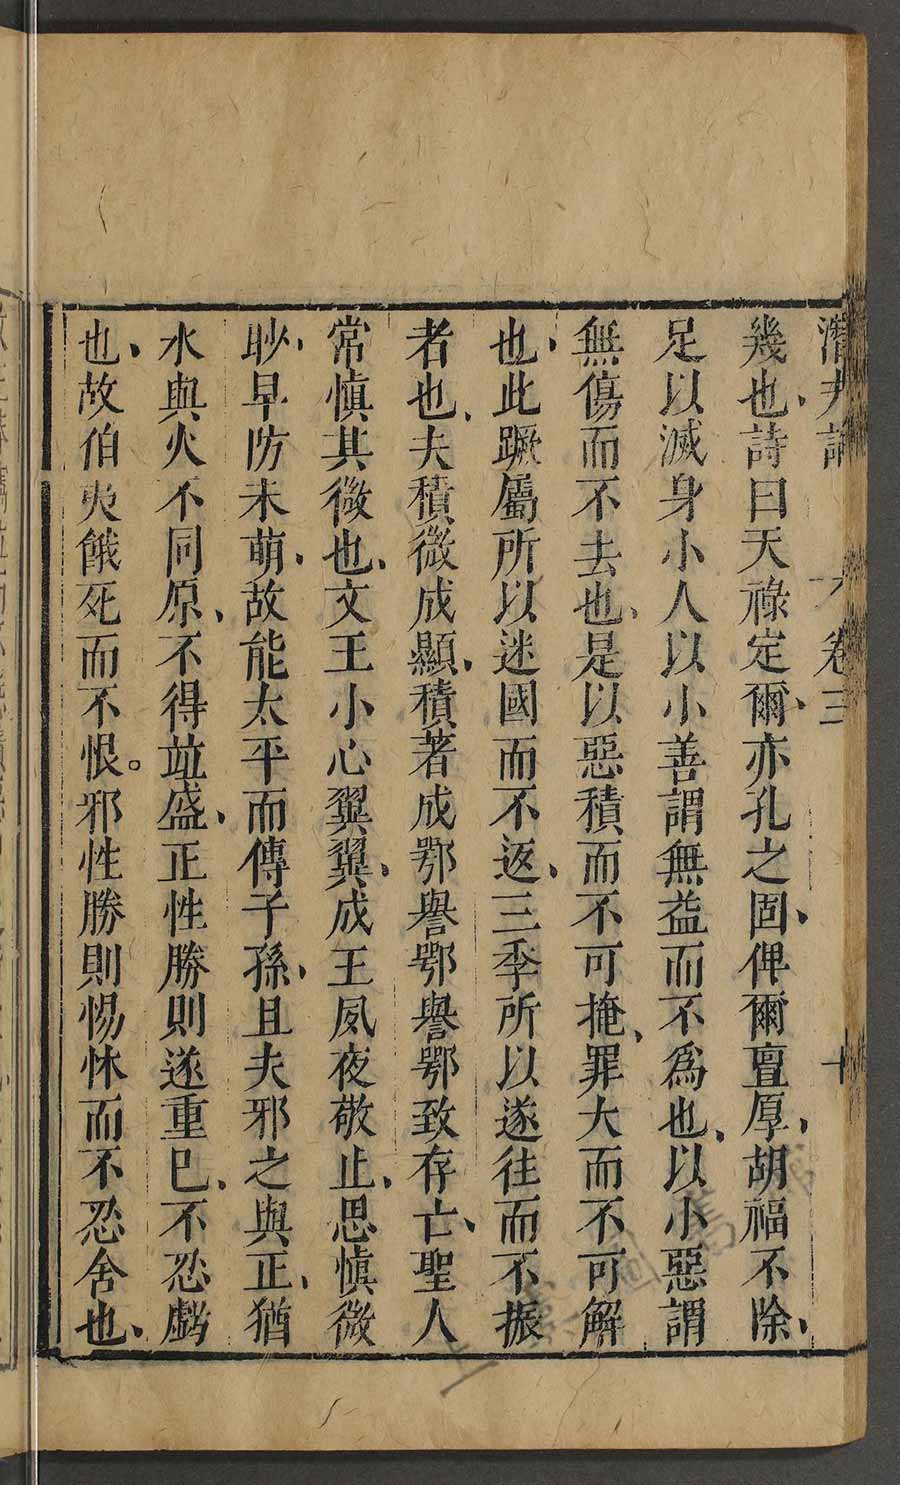 潛夫論 卷三 十
幾也、詩曰天祿定爾、亦孔之固、俾爾亶厚、胡福不除、
足以滅身小人以小善謂無益而不為也、以小惡謂
無傷而不去也、是以惡積而不可掩、罪大而不可解
也、此蹶屬所以迷國而不返、三季所以遂往而不振
者也、夫積微成顯、積著成鄂譽鄂譽鄂致存亡、聖人
常慎其微也、文王小心翼翼、成王夙夜敬止、思慎微
眇、早防未萌、故能太平而傳子孫、且夫邪之與正、猶
水與火不同原、不得竝盛、正性勝則遂重已、不忍虧
也、故伯夷餓死而不恨。邪性勝則惕怵而不忍舍也、